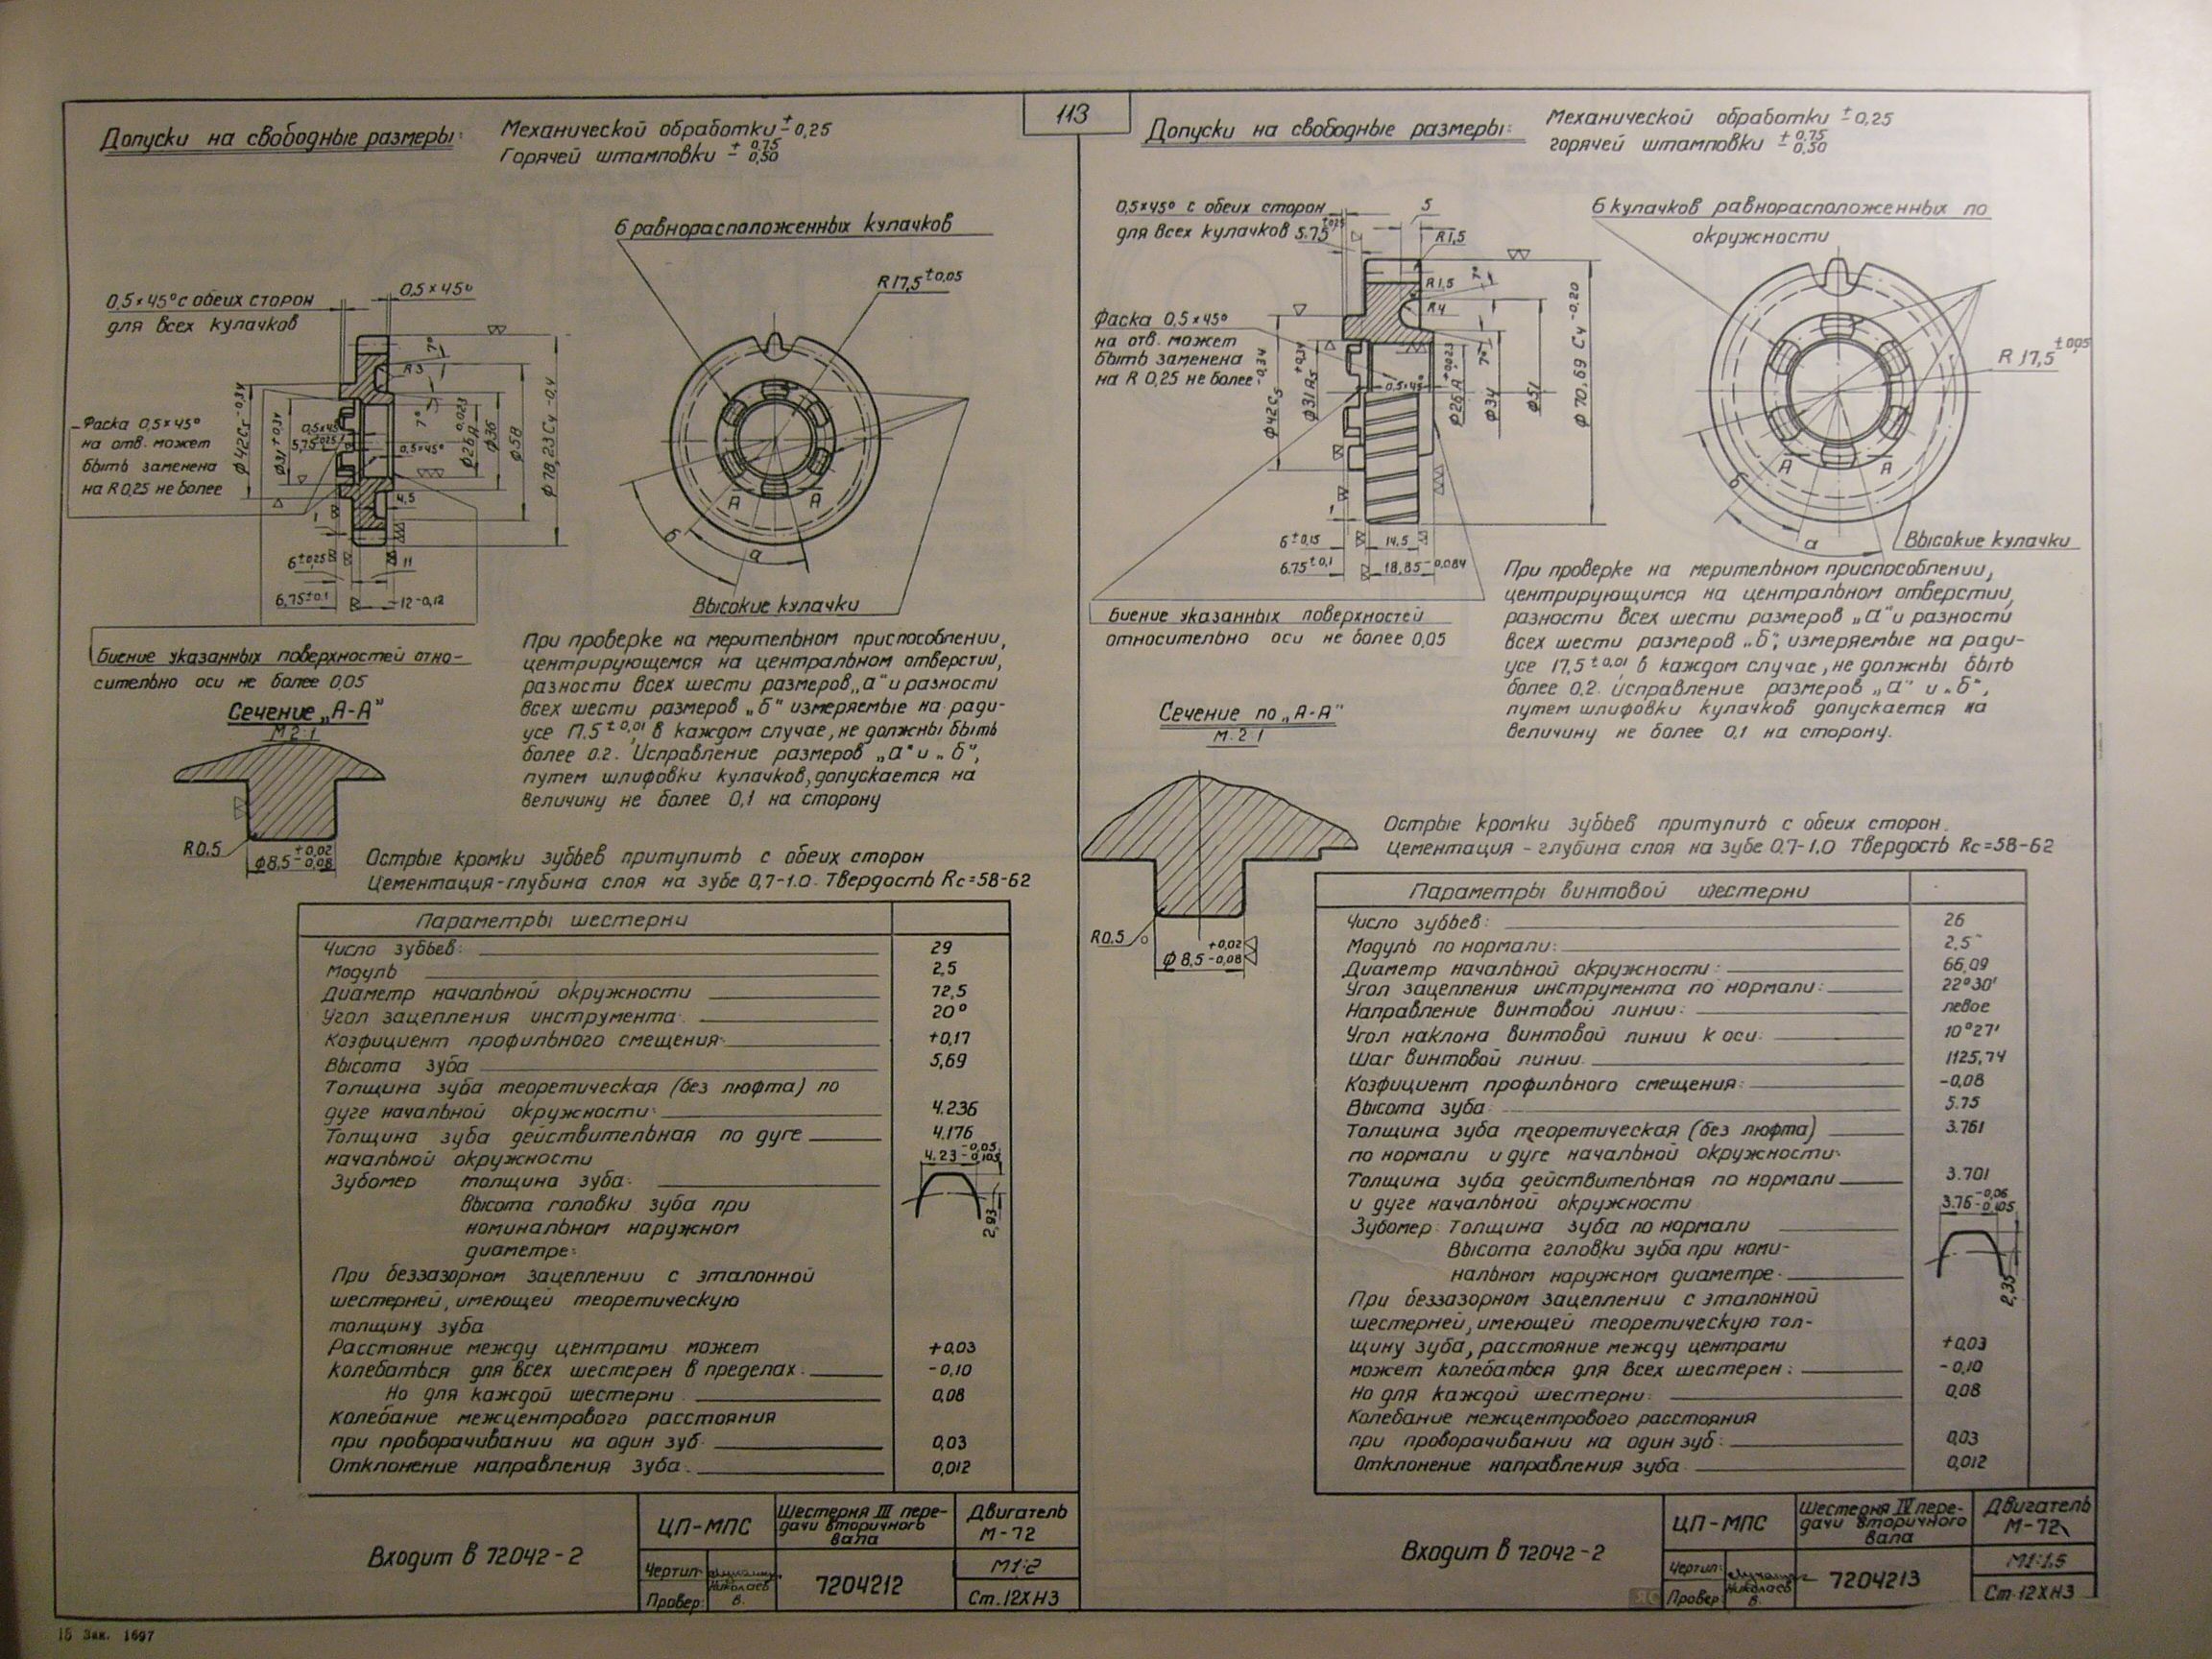 113
Допуски на свободные размеры:
Механической обработки ± 0,25
Горячей штамповки + 0,75 − 0,50
6 равнорасположенных кулачков
R17,5 ±0,05
0,5×45° с обеих сторон
для всех кулачков
0,5×45°
Фаска 0,5×45°
на отв. может
быть заменена
на R 0,25 не более
7°
R3
7°
ф42С5 -0,34
ф31 +0,34
0,5×45°
5,75 ±0,25
0,5×45°
ф26А 0,023
ф36
ф58
ф78,23С4 -0,4
4,5
1
6 ±0,25
11
6,75 ±0,1
12 -0,12
А А
б
а
Высокие кулачки
Биение указанных поверхностей отно-
сительно оси не более 0,05
Сечение „А-А"
М 2:1
R0,5
ф8,5 +0,02 -0,08
При проверке на мерительном приспособлении,
центрирующемся на центральном отверстии,
разности всех шести размеров „а" и разности
всех шести размеров „б" измеряемые на ради-
усе 17.5 ±0,01 в каждом случае, не должны быть
более 0.2. Исправление размеров „а" и „б",
путем шлифовки кулачков, допускается на
величину не более 0,1 на сторону
Острые кромки зубьев притупить с обеих сторон
Цементация - глубина слоя на зубе 0,7-1.0. Твердость Rc=58-62
Параметры шестерни
Число зубьев: 29
Модуль 2,5
Диаметр начальной окружности 72,5
Угол зацепления инструмента: 20°
Коэфициент профильного смещения: +0,17
Высота зуба 5,69
Толщина зуба теоретическая (без люфта) по
дуге начальной окружности: 4.236
Толщина зуба действительная по дуге 4.176
начальной окружности
4.23 -0,05 -0,105
Зубомер толщина зуба:
Высота головки зуба при
номинальном наружном
диаметре:
2,93
При беззазорном зацеплении с эталонной
шестерней, имеющей теоретическую
толщину зуба
Расстояние между центрами может +0,03
колебаться для всех шестерен в пределах: -0,10
Но для каждой шестерни: 0,08
Колебание межцентрового расстояния
при проворачивании на один зуб: 0,03
Отклонение направления зуба: 0,012
Входит в 72042-2
ЦП-МПС
Шестерня III пере-
дачи вторичного
вала
Двигатель
М-72
Чертил:
Провер:
Николаев
В.
7204212
М1:2
Ст. 12ХН3
15 Зак. 1697
Допуски на свободные размеры:
Механической обработки ± 0,25
горячей штамповки + 0,75 − 0,50
0,5×45° с обеих сторон
для всех кулачков
5.75 ±0,25
5
R1,5
6 кулачков равнорасположенных по
окружности
R1,5
7°
R4
Фаска 0,5×45°
на отв. может
быть заменена
на R 0,25 не более
ф42С5 -0,34
ф31А5 +0,34
0,5×45°
ф26А +0,023
7°
ф34
ф51
ф70,69 С4 -0,20
R 17,5 ±0,05
А А
б
а
Высокие кулачки
1
6 ±0,15
14,5
6.75 ±0,1
18,85 -0,084
Биение указанных поверхностей
относительно оси не более 0,05
При проверке на мерительном приспособлении,
центрирующимся на центральном отверстии,
разности всех шести размеров „а" и разности
всех шести размеров „б", измеряемые на ради-
усе 17,5 ±0,01 в каждом случае, не должны быть
более 0.2. исправление размеров „а" и „б",
путем шлифовки кулачков допускается на
величину не более 0,1 на сторону.
Сечение по „А-А"
М. 2:1
R0.5
ф 8,5 +0,02 -0,08
Острые кромки зубьев притупить с обеих сторон.
Цементация - глубина слоя на зубе 0.7-1.0 Твердость Rc=58-62
Параметры винтовой шестерни
Число зубьев: 26
Модуль по нормали: 2,5
Диаметр начальной окружности: 66,09
Угол зацепления инструмента по нормали: 22°30'
Направление винтовой линии: левое
Угол наклона винтовой линии к оси: 10°27'
Шаг винтовой линии 1125,74
Коэфициент профильного смещения: -0,08
Высота зуба: 5.75
Толщина зуба теоретическая (без люфта) 3.761
по нормали и дуге начальной окружности:
Толщина зуба действительная по нормали 3.701
и дуге начальной окружности
3.76 -0,06 -0,105
Зубомер: Толщина зуба по нормали
Высота головки зуба при номи-
нальном наружном диаметре:
2,35
При беззазорном зацеплении с эталонной
шестерней, имеющей теоретическую тол-
щину зуба, расстояние между центрами +0,03
может колебаться для всех шестерен: -0,10
Но для каждой шестерни: 0,08
Колебание межцентрового расстояния
при проворачивании на один зуб: 0,03
Отклонение направления зуба 0,012
Входит в 72042-2
ЦП-МПС
Шестерня IV пере-
дачи вторичного
вала
Двигатель
М-72
Чертил:
Провер:
Николаев
В.
7204213
М1:1,5
Ст. 12ХН3